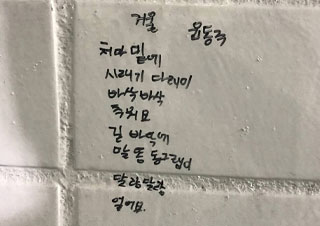 겨울 윤동주
처마 밑에
시래기 다래미
바삭바삭
추워요
길 바닥에
말똥 동그램이
달랑달랑
얼어요.